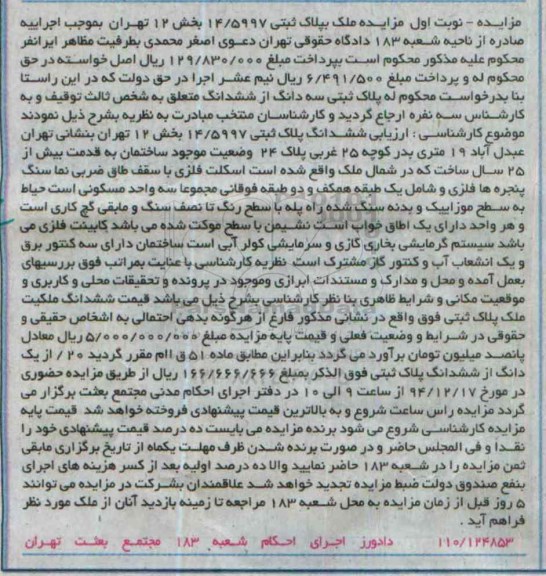 مزایـده - نوبت اول مزایـده ملک بپلاک ثبتی ۱۴/۵۹۹۷ بخش ۱۲ تهـران بموجب اجراییه
صادره از ناحیه شـعبه ۱۸۳ دادگاه حقوقی تهران دعـوی اصغر محمدی بطرفیت مظاهر ایرانفر
محکوم علیه مذکور محکوم اسـت بپرداخت مبلغ ۱۲۹/۸۳۰/۰۰۰ ریال اصل خواسـته در حق
محکوم له و پرداخت مبلغ ۶/۴۹۱/۵۰۰ ریال نیم عشـر اجرا در حق دولت که در این راسـتا
بنا بدرخواسـت محکوم له پلاک ثبتی سـه دانگ از ششـدانگ متعلق به شخص ثالث توقیف و به
کارشـناس سـه نفره ارجاع گردید و کارشـناسـان منتخب مبادرت به نظریه بشرح ذیل نمودند
موضوع کارشناسـی : ارزیابی ششـدانگ پلاک ثبتی ۱۴/۵۹۹۷ بخش ۱۲ تهران بنشانی تهران
عبدل آباد ۱۹ متری بدر کوچه ۲۵ غربی پلاک ۲۴ وضعیت موجود ساختمان به قدمت بیش از
۲۵ سـال ساخت که در شمال ملک واقع شده است اسکلت فلزی با سقف طاق ضربی نما سنگ
پنجره ها فلزی و شامل یک طبقه همکف و دو طبقه فوقانی مجموعا سه واحد مسکونی است حیاط
به سـطح موزاییک و بدنه سـنگ شده راه پله با سطح رنگ تا نصف سنگ و مابقی گچ کاری است
و هر واحد دارای یک اطاق خواب اسـت نشـیمن با سطح موکت شده می باشد کابینت فلزی می
باشد سیستم گرمایشی بخاری گازی و سرمایشی کولر آبی است ساختمان دارای سه کنتور برق
و یک انشعاب آب و کنتور گاز مشترک است نظریه کارشناسی با عنایت بمراتب فوق بررسیهای
بعمل آمده و محل و مدارک و مستندات ابرازی وموجود در پرونده و تحقیقات محلی و کاربری و
موقعیت مکانی و شرایط ظاهری بنا نظر کارشناسی بشرح ذیل می باشد قیمت ششدانگ ملکیت
ملک پلاک ثبتی فوق واقع در نشانی مذکور فارغ از هرگونه بدهی احتمالی به اشخاص حقیقی و
حقوقی در شـرایط و وضعیت فعلی و قیمت پایه مزایده مبلغ ۵/۰۰۰/۰۰۰/۰۰۰ ریال معادل
پانصـد میلیون تومان برآورد می گردد بنابراین مطابق ماده ۵۱ ق اام مقرر گردید ۲۰ / از یک
دانگ از ششدانگ پلاک ثبتی فوق الذکر بمبلغ ۱۶۶/۶۶۶/۶۶۶ ریال از طریق مزایده حضوری
در مورخ ۹۴/۱۲/۱۷ از ساعت ۹ الی ۱۰ در دفتر اجرای احکام مدنی مجتمع بعثت برگزار می
گردد مزایده راس ساعت شروع و به بالاترین قیمت پیشنهادی فروخته خواهد شد قیمت پایه
مزایده کارشناسـی شروع می شود برنده مزایده می بایست ده درصد قیمت پیشنهادی خود را
نقـدا و فی المجلس حاضر و در صورت برنده شـدن ظرف مهلت یکماه از تاریخ برگزاری مابقی
ثمن مزایده را در شـعبه ۱۸۳ حاضر نمایید والا ده درصد اولیه بعد از کسر هزینه های اجرای
بنفع صندوق دولت ضبط مزایده تجدید خواهد شـد علاقمندان بشـرکت در مزایده می توانند
۵ روز قبل از زمان مزایده به محل شـعبه ۱۸۳ مراجعه تا زمینه بازدید آنان از ملک مورد نظر
فراهم آید .
۱۱۰/۱۲۴۸۵۳ دادورز اجرای احکـام شـعبه ۱۸۳ مجتمـع بعثـت تهـران